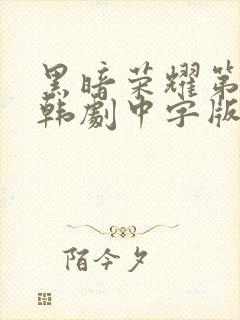 黑暗荣耀第
韩劇中字版
陌今夕